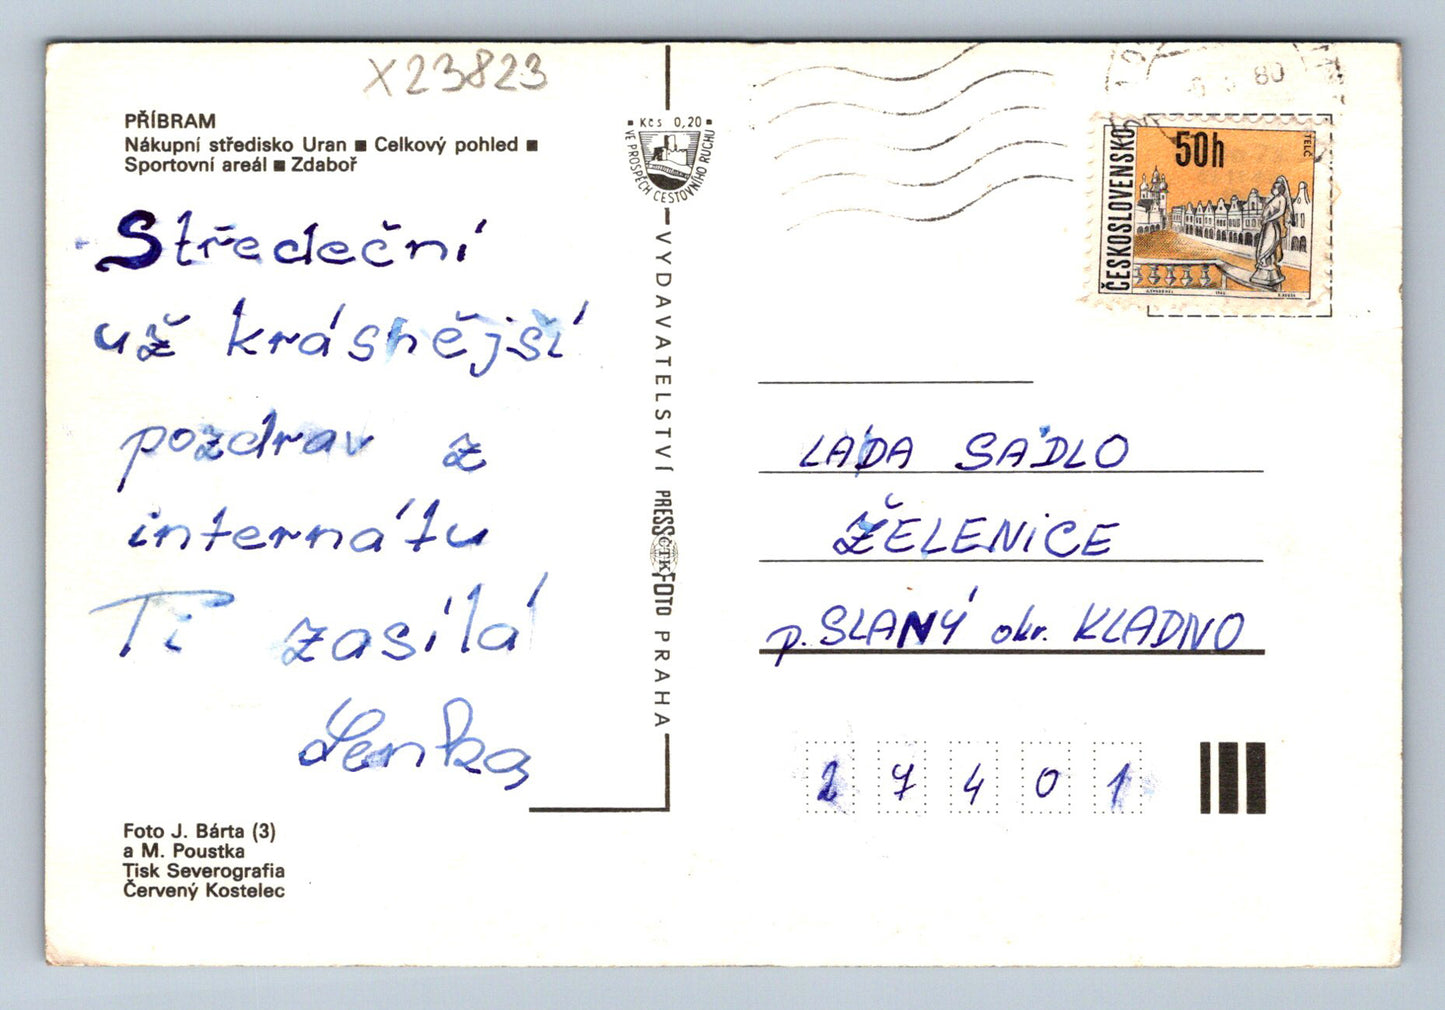 X23823
PŘÍBRAM
Nákupní středisko Uran ■ Celkový pohled ■
Sportovní areál ■ Zdaboř
Středeční
už krásnější
pozdrav z
internátu
Ti zasílá
Lenka
Foto J. Bárta (3)
a M. Poustka
Tisk Severografia
Červený Kostelec
Kčs 0,20
VE PROSPĚCH CESTOVNÍHO RUCHU
VYDAVATELSTVÍ PRESSFOTO PRAHA
ČTK
80
ČESKOSLOVENSKO
50h
TELČ
LÁĎA SÁDLO
ŽELENICE
p. SLANÝ okr. KLADNO
27401